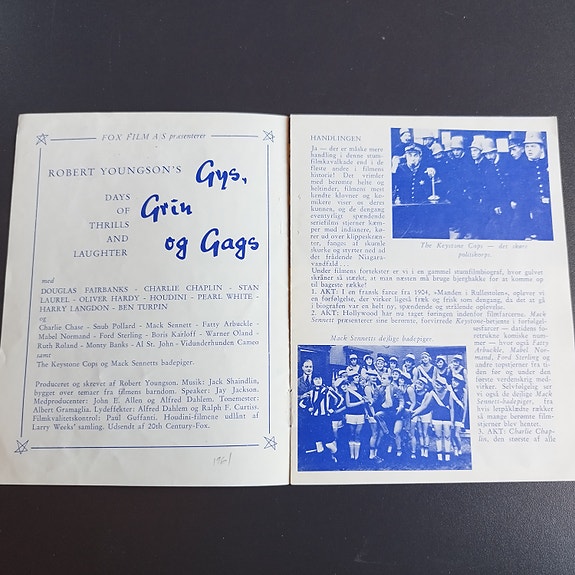 FOX FILM A/S præsenterer
ROBERT YOUNGSON'S
Gys,
DAYS
OF
THRILLS
AND
LAUGHTER
Grin
og Gags
med
DOUGLAS FAIRBANKS - CHARLIE CHAPLIN - STAN
LAUREL - OLIVER HARDY - HOUDINI - PEARL WHITE -
HARRY LANGDON - BEN TURPIN
og
Charlie Chase - Snub Pollard - Mack Sennett - Fatty Arbuckle -
Mabel Normand - Ford Sterling - Boris Karloff - Warner Oland -
Ruth Roland - Monty Banks - Al St. John - Vidunderhunden Cameo
samt
The Keystone Cops og Mack Sennetts badepiger.
Produceret og skrevet af Robert Youngson. Musik: Jack Shaindlin,
bygget over temaer fra filmens barndom. Speaker: Jay Jackson.
Medproducenter: John E. Allen og Alfred Dahlem. Tonemester:
Albert Gramaglia. Lydeffekter: Alfred Dahlem og Ralph F. Curtiss.
Filmkvalitetskontrol: Paul Guffanti. Houdini-filmene udlånt af
Larry Weeks' samling. Udsendt af 20th Century-Fox.
1961
HANDLINGEN
Ja — der er måske mere
handling i denne stum-
filmskavalkade end i de
fleste andre i filmens
historie! Det vrimler
med berømte helte og
heltinder, filmens mest
kendte klovner og ko-
mikere viser os deres
kunnen, og de dengang
eventyrligt spændende
seriefilms stjerner kæm-
per med indianere, kø-
rer ud over klippeskræn-
ter, fanges af skumle
skurke og styrter ned ad
det frådende Niagara-
vandfald....
The Keystone Cops — det skøre
politikorps.
Under filmens fortekster er vi i en gammel stumfilmsbiograf, hvor gulvet
skråner så stærkt, at man næsten må bruge bjerghakke for at komme op
til bageste række!
1. AKT: I en fransk farce fra 1904, »Manden i Rullestolen«, oplever vi
en forfølgelse, der virker ligeså fræk og frisk som dengang, da det at gå
i biografen var en helt ny, spændende og strålende oplevelse.
2. AKT: Hollywood har nu taget føringen indenfor filmfarcerne. Mack
Sennett præsenterer sine berømte, forvirrede Keystone-betjente i forfølgel-
Mack Sennetts dejlige badepiger.
sesfarcer — datidens fo-
retrukne komiske num-
mer — hvor også Fatty
Arbuckle, Mabel Nor-
mand, Ford Sterling og
andre topstjerner fra ti-
den før og under den
første verdenskrig med-
virker. Selvfølgelig ser
vi også de dejlige Mack
Sennett-badepiger, fra
hvis letpåklædte rækker
så mange berømte film-
stjerner blev hentet.
3. AKT: Charlie Chap-
lin, den største af alle